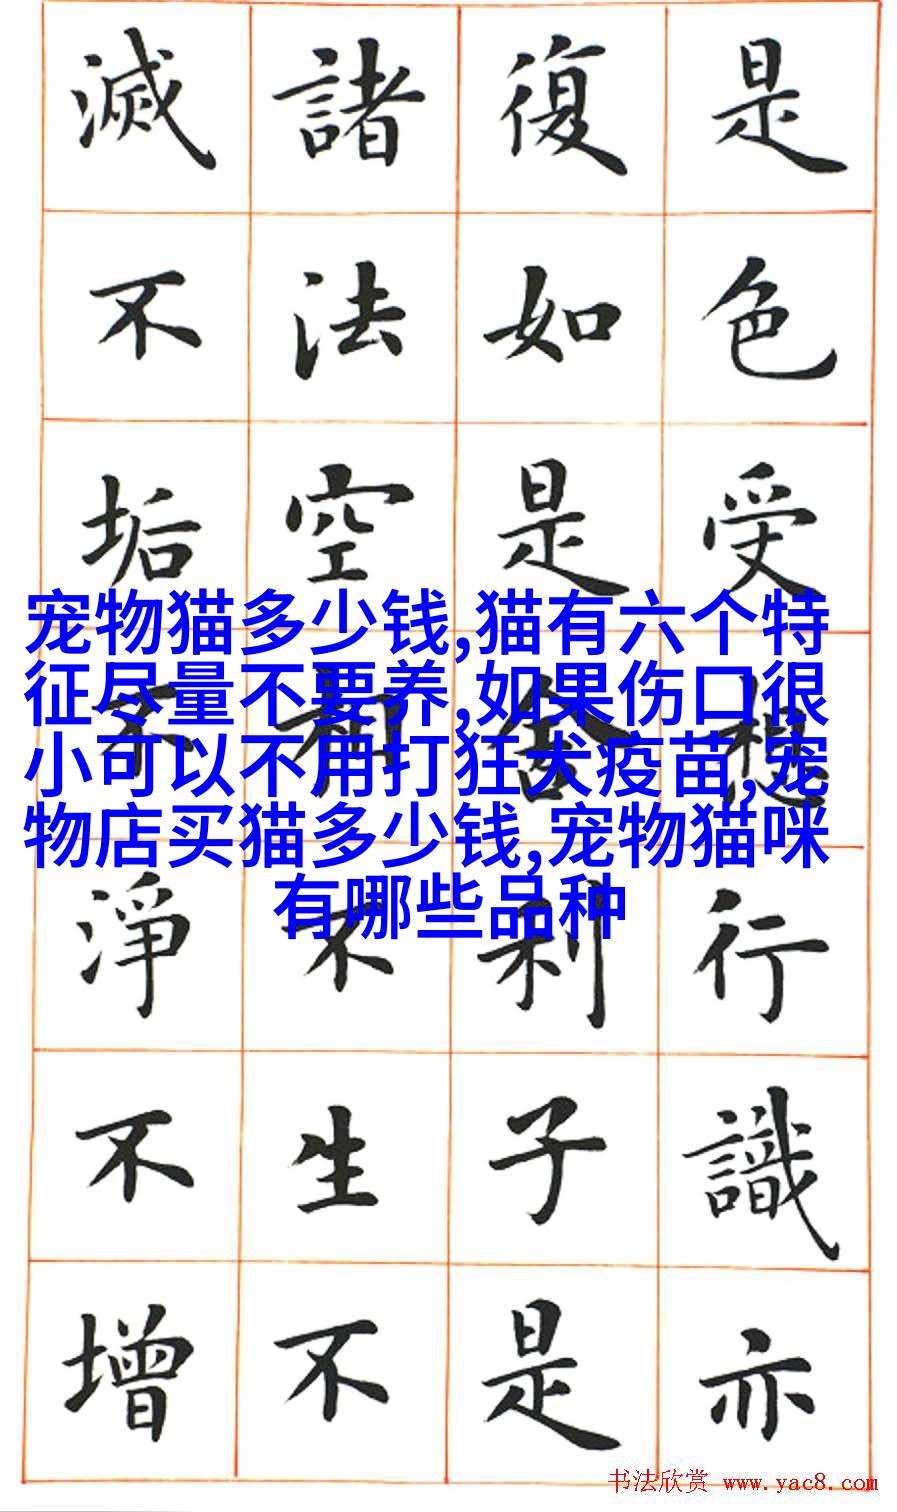 是色受想行識亦
復如是舍利子是
諸法空相不生不
滅不垢不淨不增
宠物猫多少钱,猫有六个特
征尽量不要养,如果伤口很
小可以不用打狂犬疫苗,宠
物店买猫多少钱,宠物猫咪
有哪些品种
书法欣赏 www.yac8.com